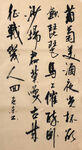 葡萄美酒夜光杯欲
飲琵琶馬上催醉卧
沙場君莫笑古来
征戰幾人回